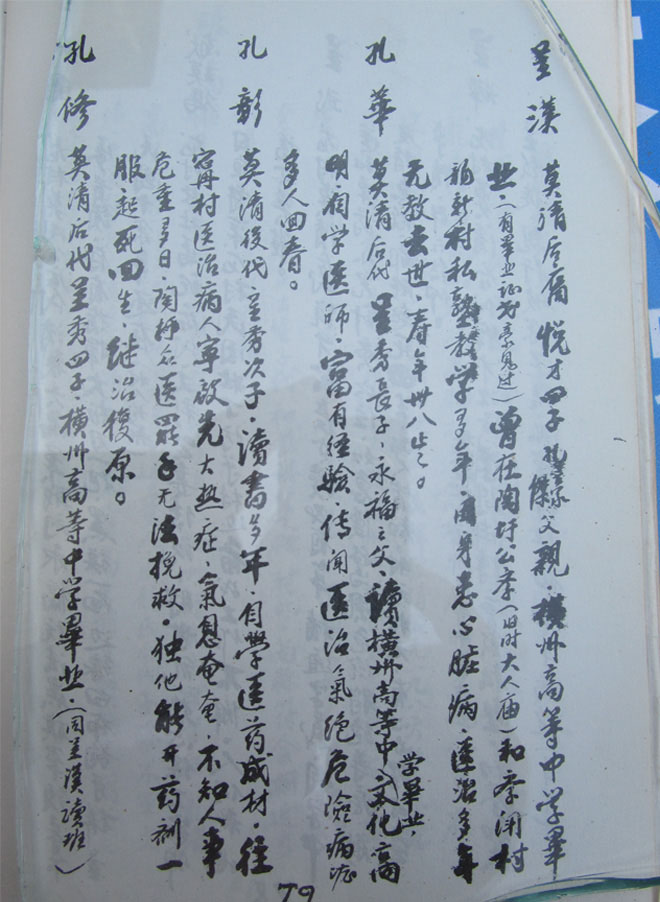 呈漢 莫清后裔悦才四子孔豪傑父親·横州高等中学畢
业·(有畢业证書亲見过)曾在陶圩公学(旧时大人庙)和李閉村
龍新村私塾教学多年·因身患心脏病·医治多年
无救去世·寿年卅八岁。
孔華 莫清后代呈秀長子·永福之父·讀横州高等中学畢业文化高
明·自学医师·富有经驗·傳闻医治氣绝危险病症
多人回春。
孔彰 莫清後代·呈秀次子·讀書多年·自学医药成材·往
甯再村医治病人寧啟光大热症·氣息奄奄·不知人事
危重多日·陶圩众医罷手无法挽救·独他能开药剂一
服·起死回生·继治復原。
孔修 莫清后代呈秀四子·横州高等中学畢业·(同呈漢讀班)
79